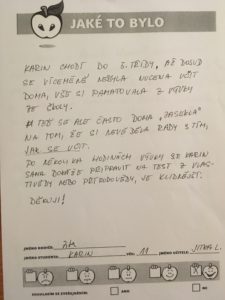 JAKÉ TO BYLO
KARIN CHODÍ DO 5. TŘÍDY, AŽ DOSUD
SE VÍCEMÉNĚ NEBYLA NUCENA UČIT
DOMA, VŠE SI PAMATOVALA Z VÝUKY
ZE ŠKOLY.
TEĎ SE ALE ČASTO DOMA „ZASEKLA"
NA TOM, ŽE SI NEVĚDĚLA RADY S TÍM,
JAK SE UČIT.
PO NĚKOLIKA HODINÁCH VÝUKY SE KARIN
SAMA DOKÁŽE PŘIPRAVIT NA TEST Z VLAS-
TIVĚDY NEBO PŘÍRODOVĚDY, JE KLIDNĚJŠÍ.
DĚKUJI!
JMÉNO RODIČE:
JMÉNO STUDENTA: KARIN VĚK: 11 JMÉNO UČITELE: JITKA L.
SOUHLASÍM SE ZVEŘEJNĚNÍM: ANO NE